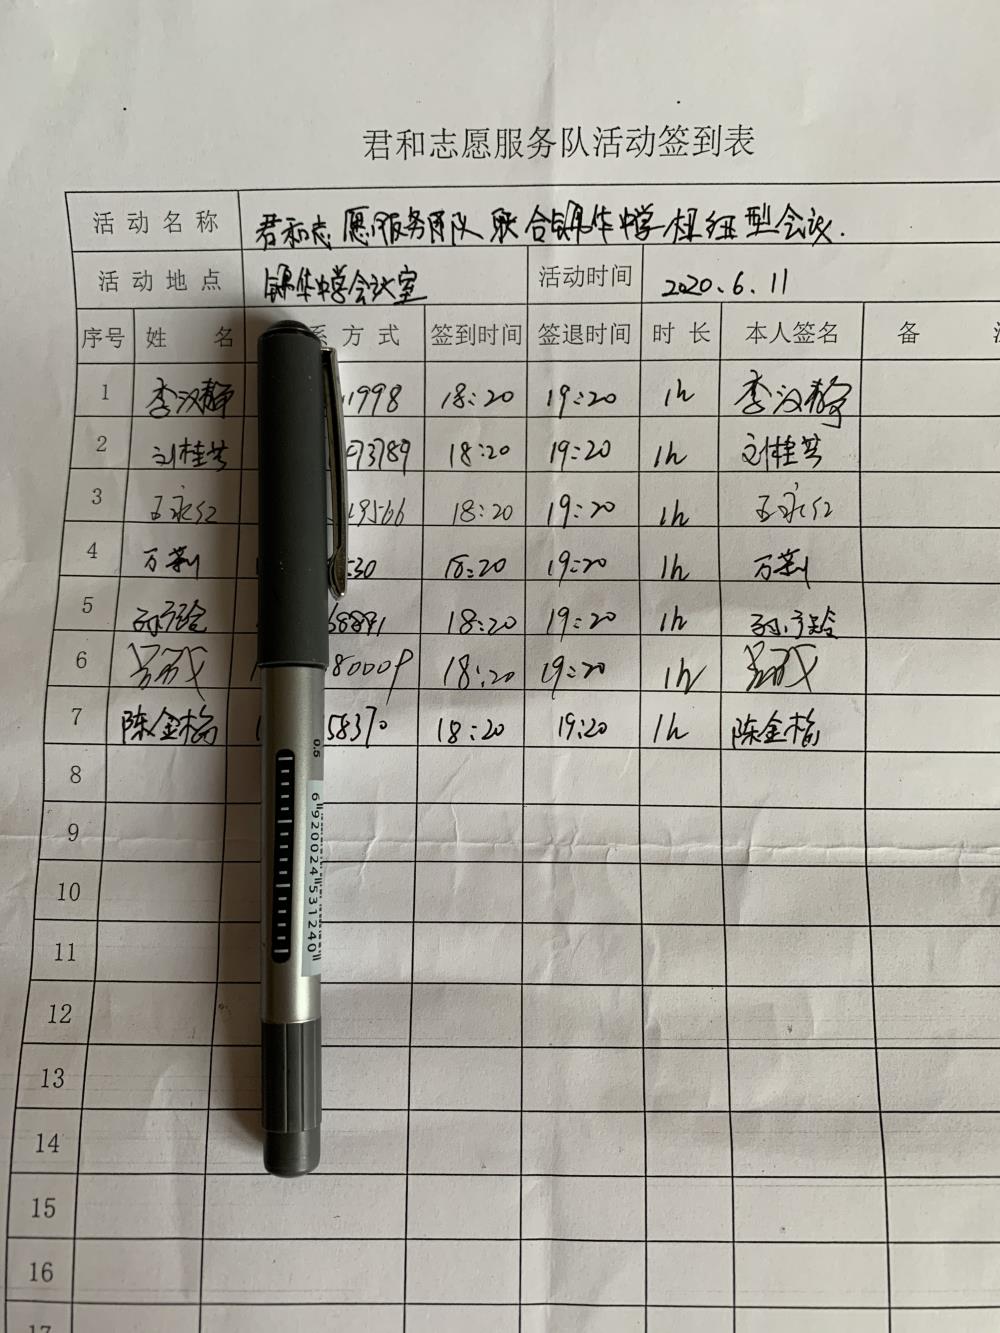 君和志愿服务队活动签到表
活动名称 君和志愿服务团队联合锦华中学组纽型会议.
活动地点 锦华中学会议室 活动时间 2020.6.11
序号 姓名 系方式 签到时间 签退时间 时长 本人签名 备
1 李汉静 1998 18:20 19:20 1h 李汉静
2 刘桂芳 93789 18:20 19:20 1h 刘桂芳
3 王永红 19566 18:20 19:20 1h 王永红
4 万莉 530 18:20 19:20 1h 万莉
5 68891 18:20 19:20 1h
6 80009 18:20 19:20 1h
7 陈金梅 58370 18:20 19:20 1h 陈金梅
8
9
10
11
12
13
14
15
16
17
0.5
6920024531240